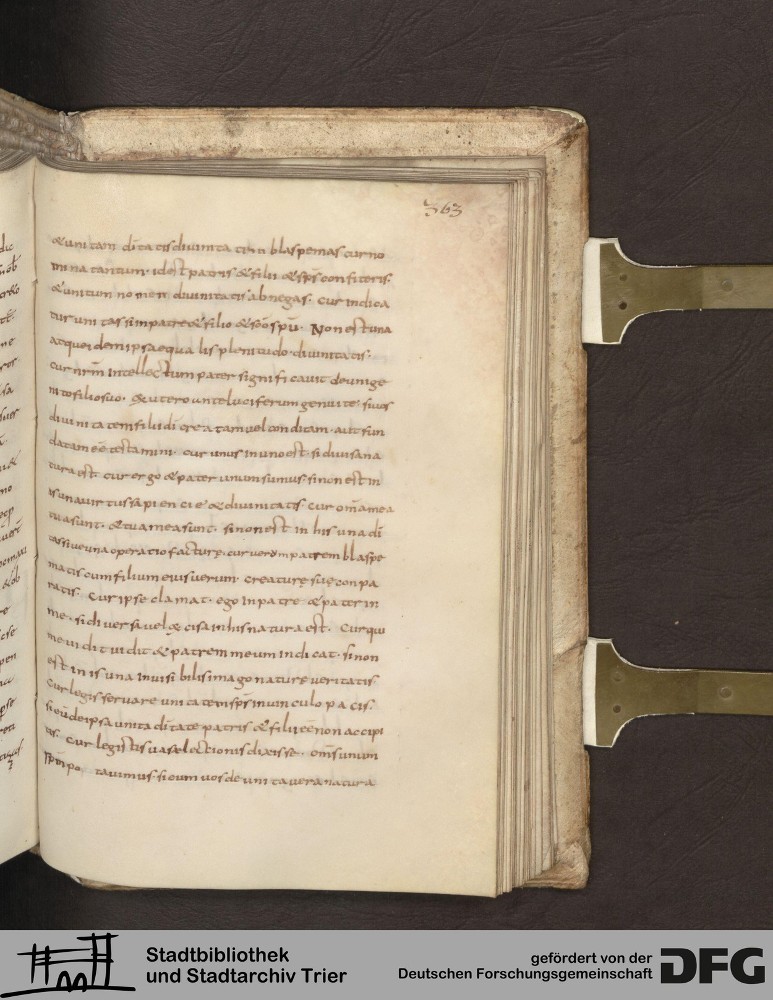 363
& unitam ditatis divinitatem blaspemas cur no
mina tantum · id est patris & filii & sp̄s confiteris ·
& unitum nomen divinitatis abnegas · Cur indica
tur unitas sim patre & filio & sc̄o spū · Non est una
atque idemipsa equalis plenitudo divinitatis ·
Cur nr̄m intellectum pater significavit de unige
nito filio suo · ex utero ante luciferum genui te · si vos
divinitatem filii dī creatam vel conditam · aut fun
datam eē testamini · cur unus in uno est · si divisa na
tura est · cur ergo & pater unum sumus · si non est in
is una virtus sapiencie & divinitatis · Cur om̄a mea
tua sunt · & tua mea sunt · si non est in his una di
tas sive una operatio facture · cur verum patrem blaspe
matis cum filium eius verum · creature sue conpa
ratis · Cur ipse clamat · ego in patre & pater in
me · si diversa vel & cisa in his natura est · Cur qui
me vidit vidit & patrem meum indicat · si non
est in is una invisibilis imago nature veritatis ·
Cur legis servare unitatem sp̄s in vinculo pacis ·
si eūdē ipsa unita ditate patris & filii eē non accipi
tis · Cur legistis vas electionis dixisse · om̄s unum
sp̄m po tavimus · si eum vos de unita vera natura
dic
ne
sa
no
Stadtbibliothek
und Stadtarchiv Trier
gefördert von der
Deutschen Forschungsgemeinschaft
DFG